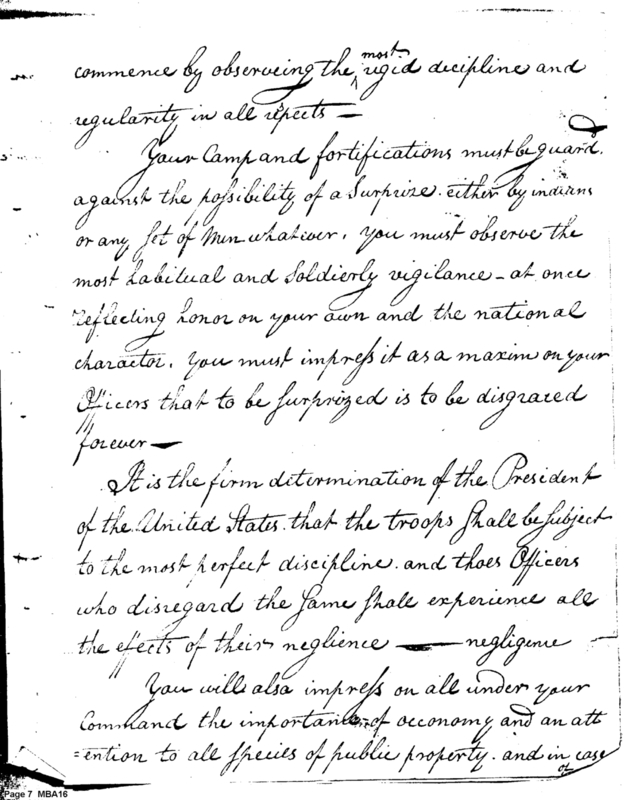 commence by observeing the most rigid decipline and
regularity in all repects —
Your Camp and fortifications must be guard.d
against the possibility of a Surprize. either by indians
or any Set of Men whatever. You must observe the
most habitual and Soldierly vigilance – at once
reflecting honor on your own and the national
charactor. You must impress it as a maxim on your
Officers that to be Surprized is to be disgraced
forever —
It is the firm determination of the President
of the United States. that the troops Shall be Subject
to the most perfect discipline. and thoes Officers
who disregard the Same Shall experience all
the effects of their neglience — negligence
You will also impress on all under your
Command the importance of oeconomy and an att
=ention to all Species of public property. and in case
of
Page 7 MBA16